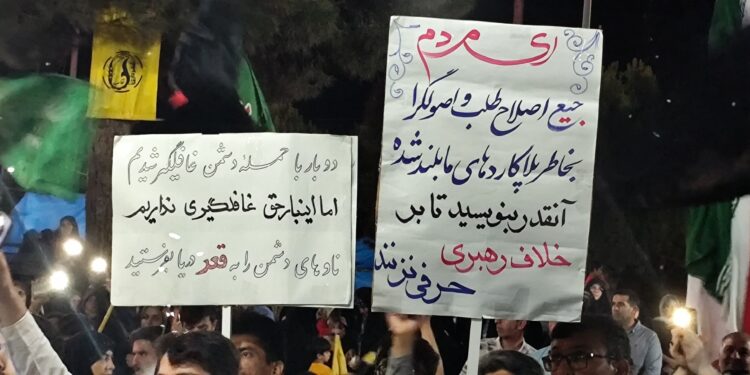 دو بار با حمله دشمن غافلگیر شدیم
اما اینبار حق غافلگیری نداریم
ناوهای دشمن را به قعر دریا بفرستید
ای مردم
جیع اصلاح طلب و اصولگرا
بخاطر پلاکاردهای ما بلند شده
آنقدر بنویسید تا بر
خلاف رهبری
حرفی نزنند